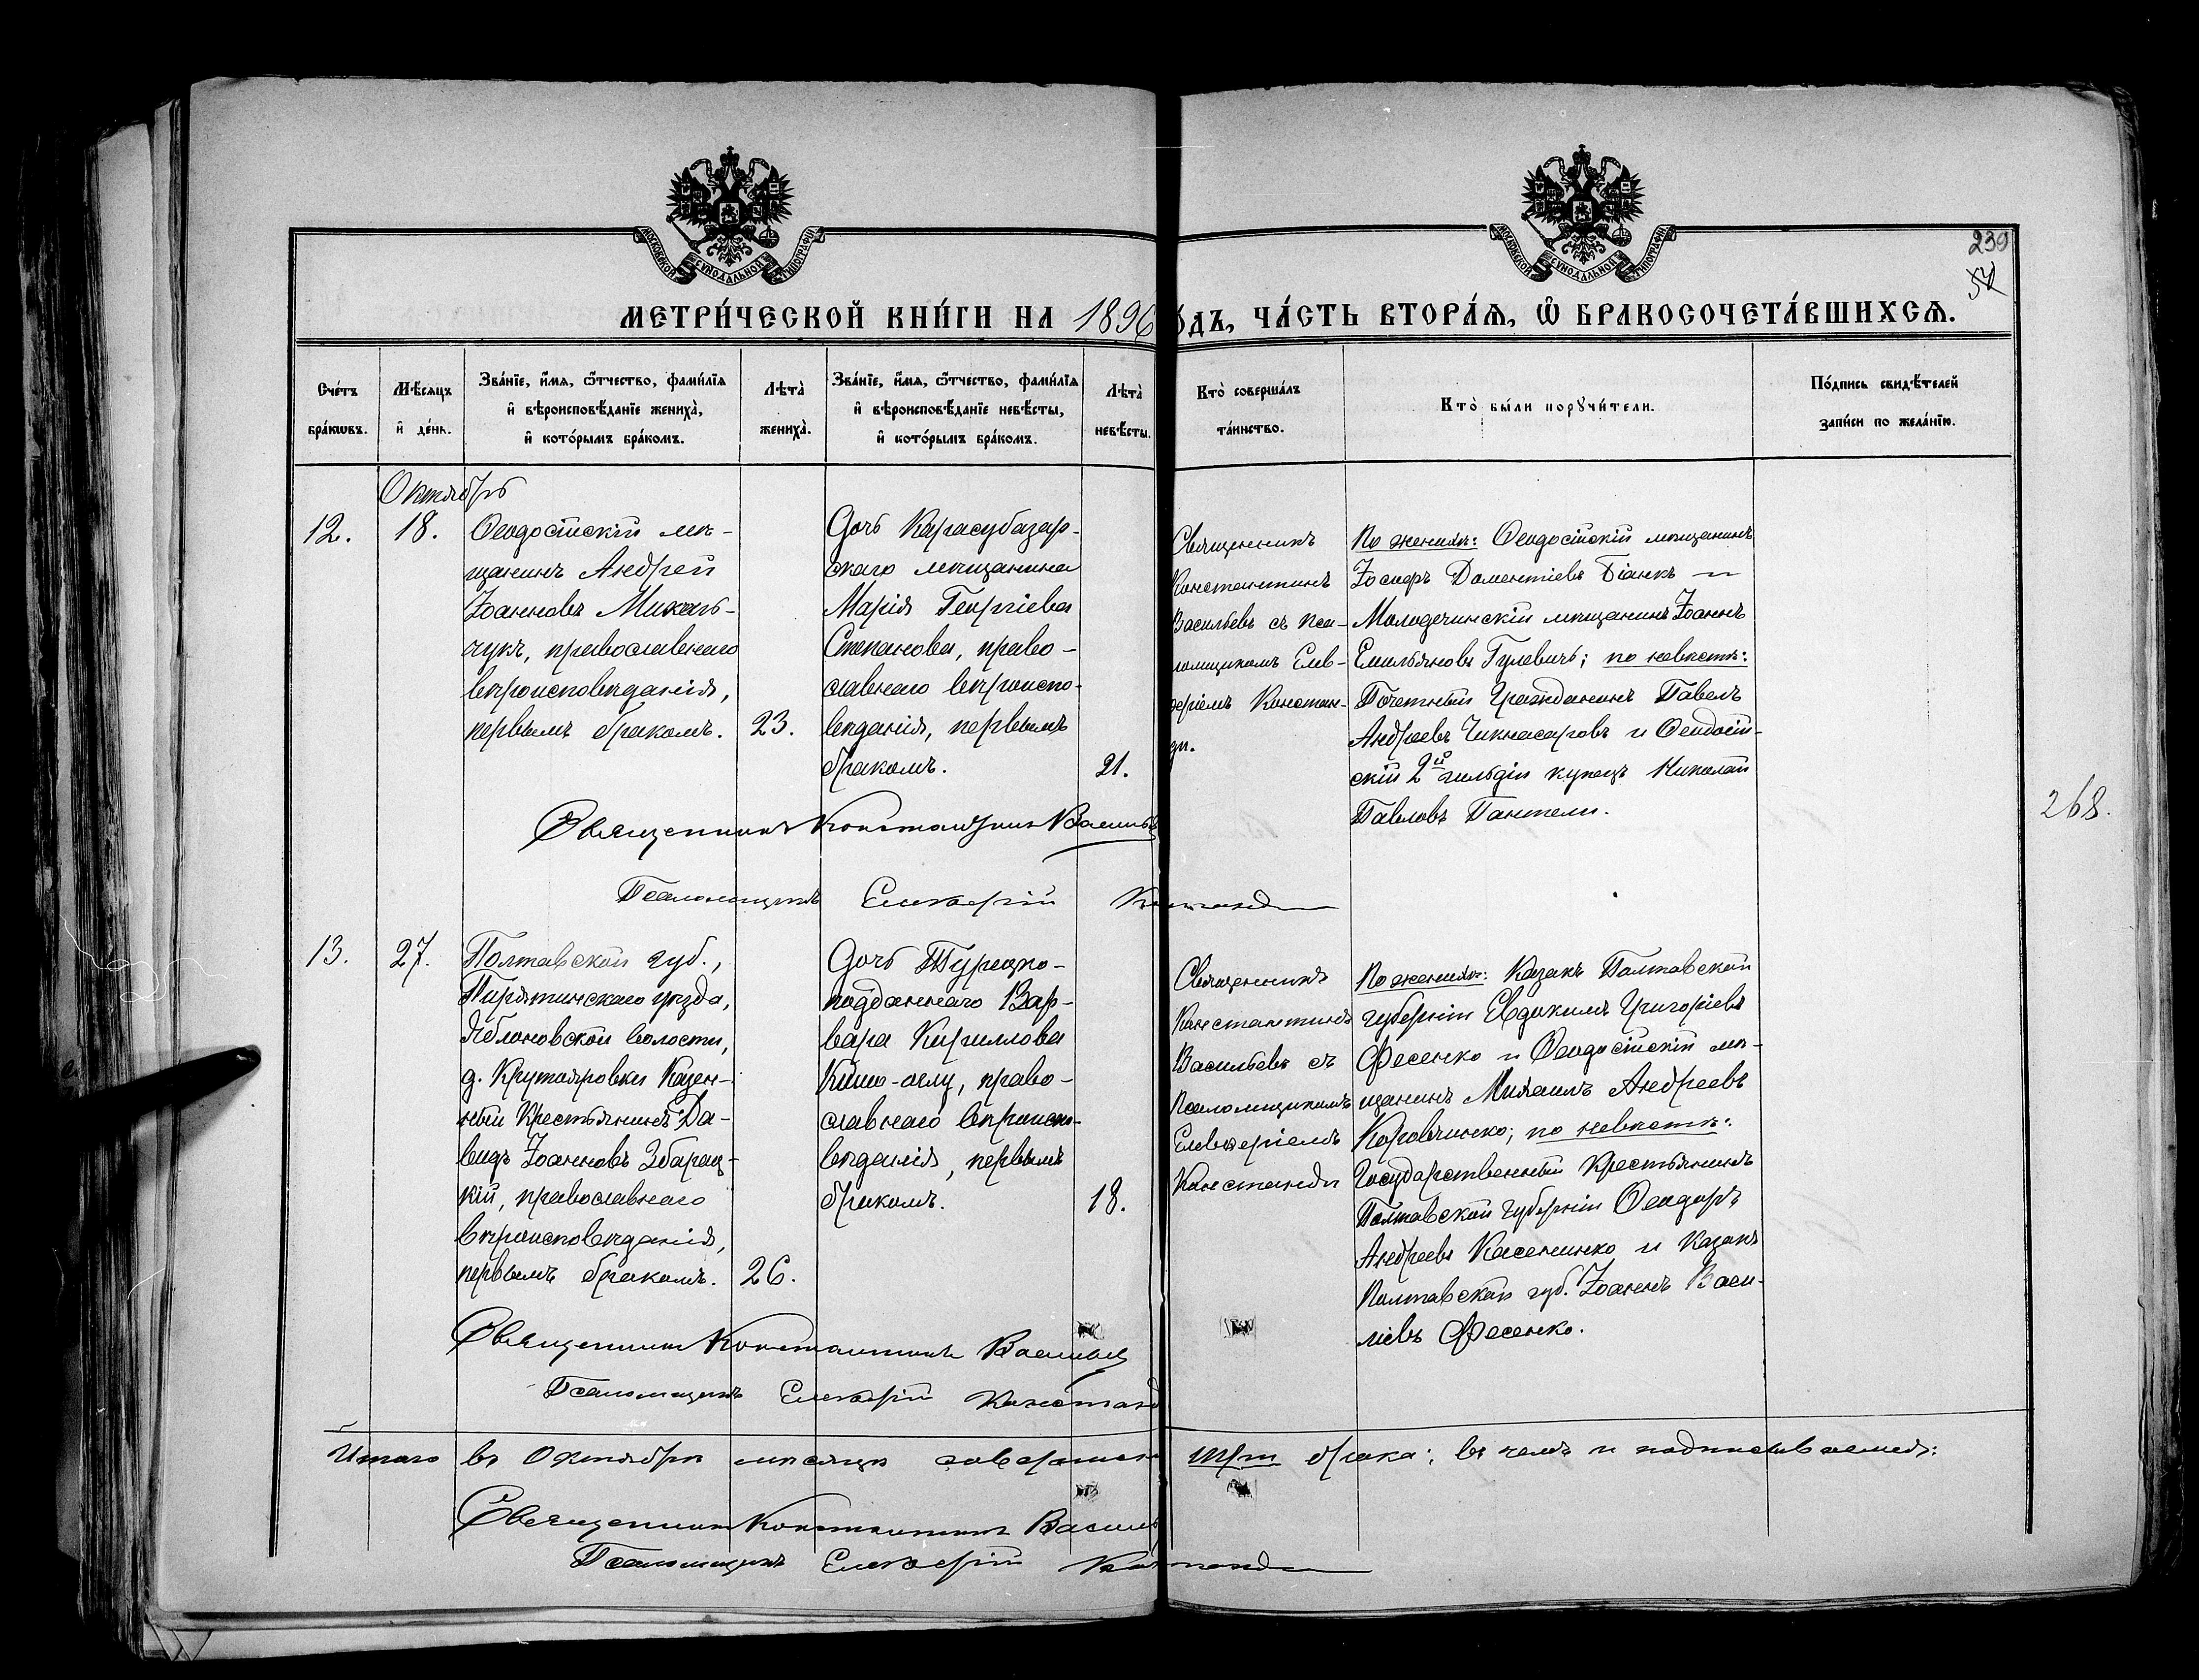 МОСКОВСКОЙ СУНОДАЛЬНОЙ ТИПОГРАФІИ
МОСКОВСКОЙ СУНОДАЛЬНОЙ ТИПОГРАФІИ
239
МЕТРИ́ЧЕСКОЙ КНИ́ГИ НА 1896
ѻ́дъ, ЧА́СТЬ ВТОРА́Ѧ, Ѡ҆ БРАКОСОЧЕТА́ВШИХСѦ.
Сче́тъ бра́кѡвъ.
Мѣ́сяцъ и҆ де́нь.
Зва́нїе, и҆́мѧ, ѻ҆́тчество, фами́лїѧ и҆ вѣроисповѣ́данїе жениха̀, и҆ кото́рымъ бра́комъ.
Лѣта̀ жениха̀.
Зва́нїе, и҆́мѧ, ѻ҆́тчество, фами́лїѧ и҆ вѣроисповѣ́данїе невѣ́сты, и҆ кото́рымъ бра́комъ.
Лѣта̀ невѣ́сты.
Кто̀ соверша́лъ та́инство.
Кто̀ бы́ли порꙋчи́тели.
По́дпись свидѣ́телей за́писи по жела́нїю.
Октябрь
12.
18.
Ѳеодосійскій мѣ-
щанинъ Андрей
Іоанновъ Михаль-
чукъ, православнаго
вѣроисповѣданія,
первымъ бракомъ.
23.
Дочь Карасубазар-
скаго мѣщанина
Марія Георгіева
Степанова, право-
славнаго вѣроиспо-
вѣданія, первымъ
бракомъ.
21.
Священникъ
Константинъ
Васильевъ съ пса-
ломщикомъ Елев-
ѳеріемъ Констан-
ди.
По женихѣ: Ѳеодосійскій мѣщанинъ
Іосифъ Доментіевъ Біанкъ и
Молодечинскій мѣщанинъ Іоаннъ
Емельяновъ Гулевичъ; по невѣстѣ:
Почетный Гражданинъ Павелъ
Андреевъ Чикнасаровъ и Ѳеодосій-
скій 2й гильдіи купецъ Николай
Павловъ Пантели.
268.
Священникъ Константинъ Васильевъ
Псаломщикъ Елевѳерій Констанди
13.
27.
Полтавской губ.,
Пирятинскаго уѣзда,
Яблоновской волости,
д. Крутояровки Казен-
ный Крестьянинъ Да-
видъ Іоанновъ Збарац-
кій, православнаго
вѣроисповѣданія,
первымъ бракомъ.
26.
Дочь Турецко-
подданнаго Вар-
вара Кириллова
оглу, право-
славнаго вѣроиспо-
вѣданія, первымъ
бракомъ.
18.
Священникъ
Константинъ
Васильевъ съ
Псаломщикомъ
Елевѳеріемъ
Констанди
По женихѣ: Казакъ Полтавской
губерніи Евдокимъ Григоріевъ
Фесенко и Ѳеодосійскій мѣ-
щанинъ Михаилъ Андреевъ
по невѣстѣ:
Государственный Крестьянинъ
Полтавской губерніи Ѳеодоръ
Андреевъ Касененко и Казакъ
Полтавской губ. Іоаннъ Васи-
ліевъ Фесенко.
Священникъ Константинъ Васильевъ
Псаломщикъ Елевѳерій Констанд
Итого въ Октябрѣ мѣсяцѣ совершен три брака; въ чемъ и подписываемся:
Священникъ Константинъ Василь
Псаломщикъ Елевѳерій Констанди